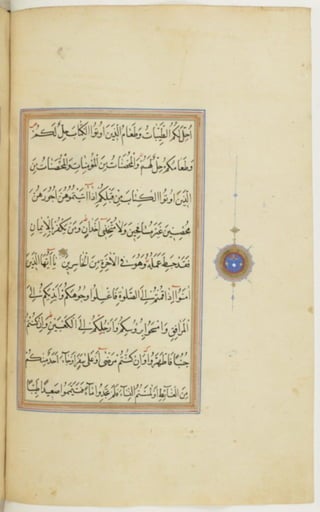 احل لكم الطيبات وطعام الذين اوتوا الكتاب حل لكم
وطعامكم حل لهم والمحصنات من المؤمنات والمحصنات من
الذين اوتوا الكتاب من قبلكم اذا اتيتموهن اجورهن
محصنين غير مسافحين ولا متخذى اخدان ومن يكفر بالايمان
فقد حبط عمله وهو فى الاخرة من الخاسرين يا ايها الذين
امنوا اذا قمتم الى الصلوة فاغسلوا وجوهكم وايديكم الى
المرافق وامسحوا برؤسكم وارجلكم الى الكعبين وان كنتم
جنبا فاطهروا وان كنتم مرضى او على سفر او جاء احد منكم
من الغائط او لمستم النساء فلم تجدوا ماء فتيمموا صعيدا طيبا